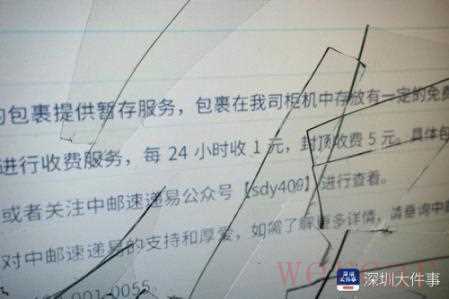 的包裹提供暂存服务，包裹在我司柜机中存放有一定的免费
进行收费服务，每 24 小时收 1 元，封顶收费 5 元。具体包
或者关注中邮速递易公众号【sdy400】进行查看。
对中邮速递易的支持和厚爱，如需了解更多详情，请垂询中邮
001-0055
深圳大件事